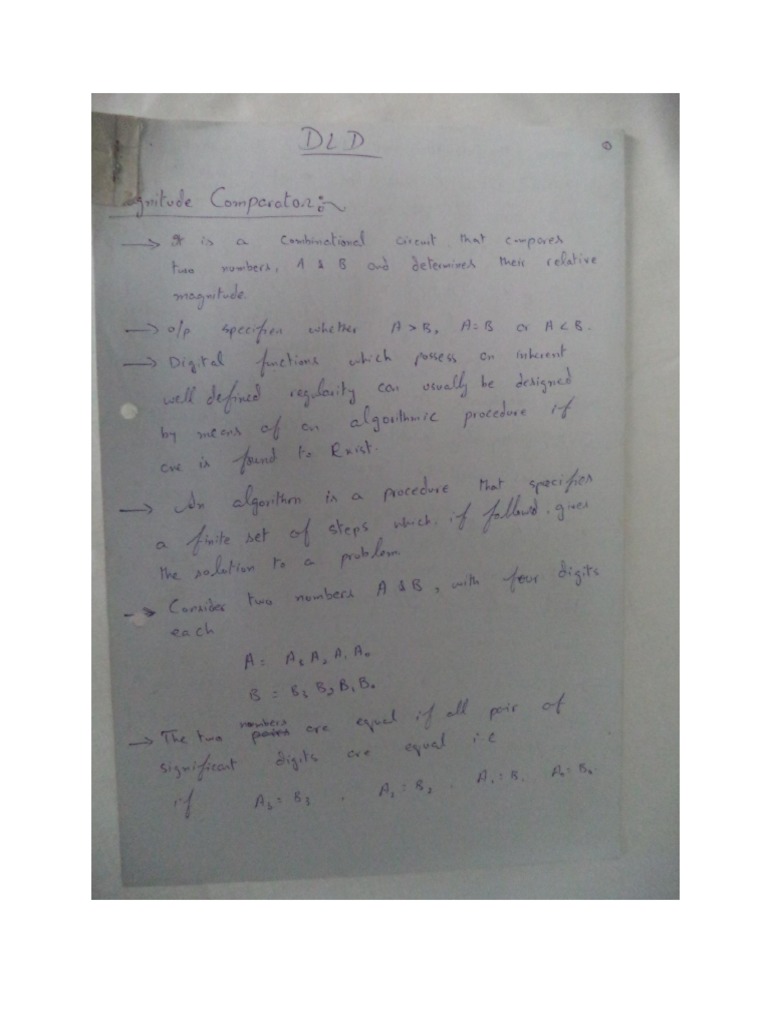 DLD
gnitude Comparator:~
→ It is a combinational circuit that compares
two numbers, A & B and determines their relative
magnitude.
→ o/p specifies whether A > B, A = B or A < B.
→ Digital functions which possess an inherent
well defined regularity can usually be designed
by means of an algorithmic procedure if
one is found to Exist.
→ An algorithm is a procedure that specifies
a finite set of steps which, if followed, gives
the solution to a problem.
→ Consider two numbers A & B, with four digits
each
A = A₃ A₂ A₁ A₀
B = B₃ B₂ B₁ B₀
→ The two numbers are equal if all pair of
significant digits are equal i.e
if A₃ = B₃ , A₂ = B₂ , A₁ = B₁ A₀ = B₀.